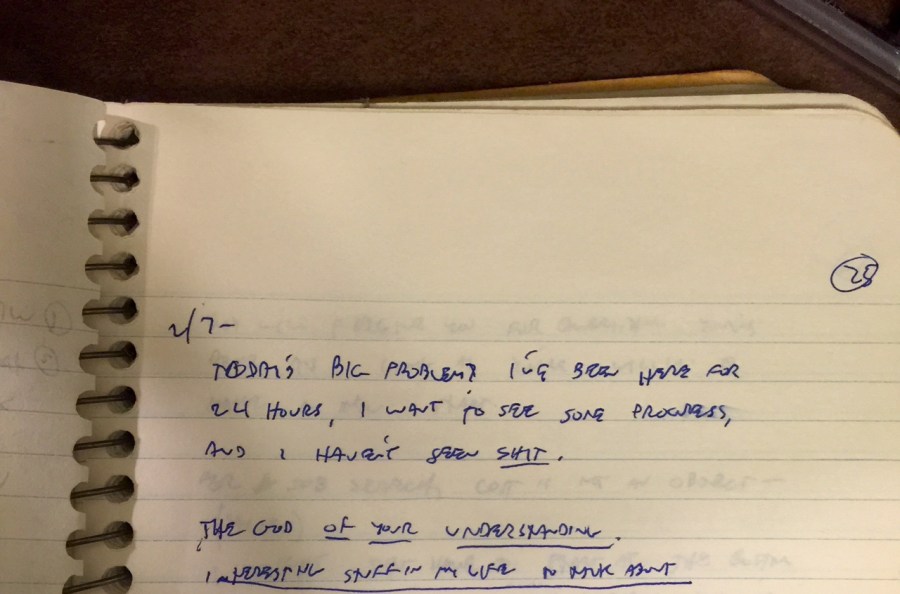 28
2/7-
TODAY'S BIG PROBLEM? I'VE BEEN HERE FOR
24 HOURS, I WANT TO SEE SOME PROGRESS,
AND I HAVEN'T SEEN SHIT.
THE GOD OF YOUR UNDERSTANDING.
INTERESTING STUFF IN MY LIFE TO THINK ABOUT